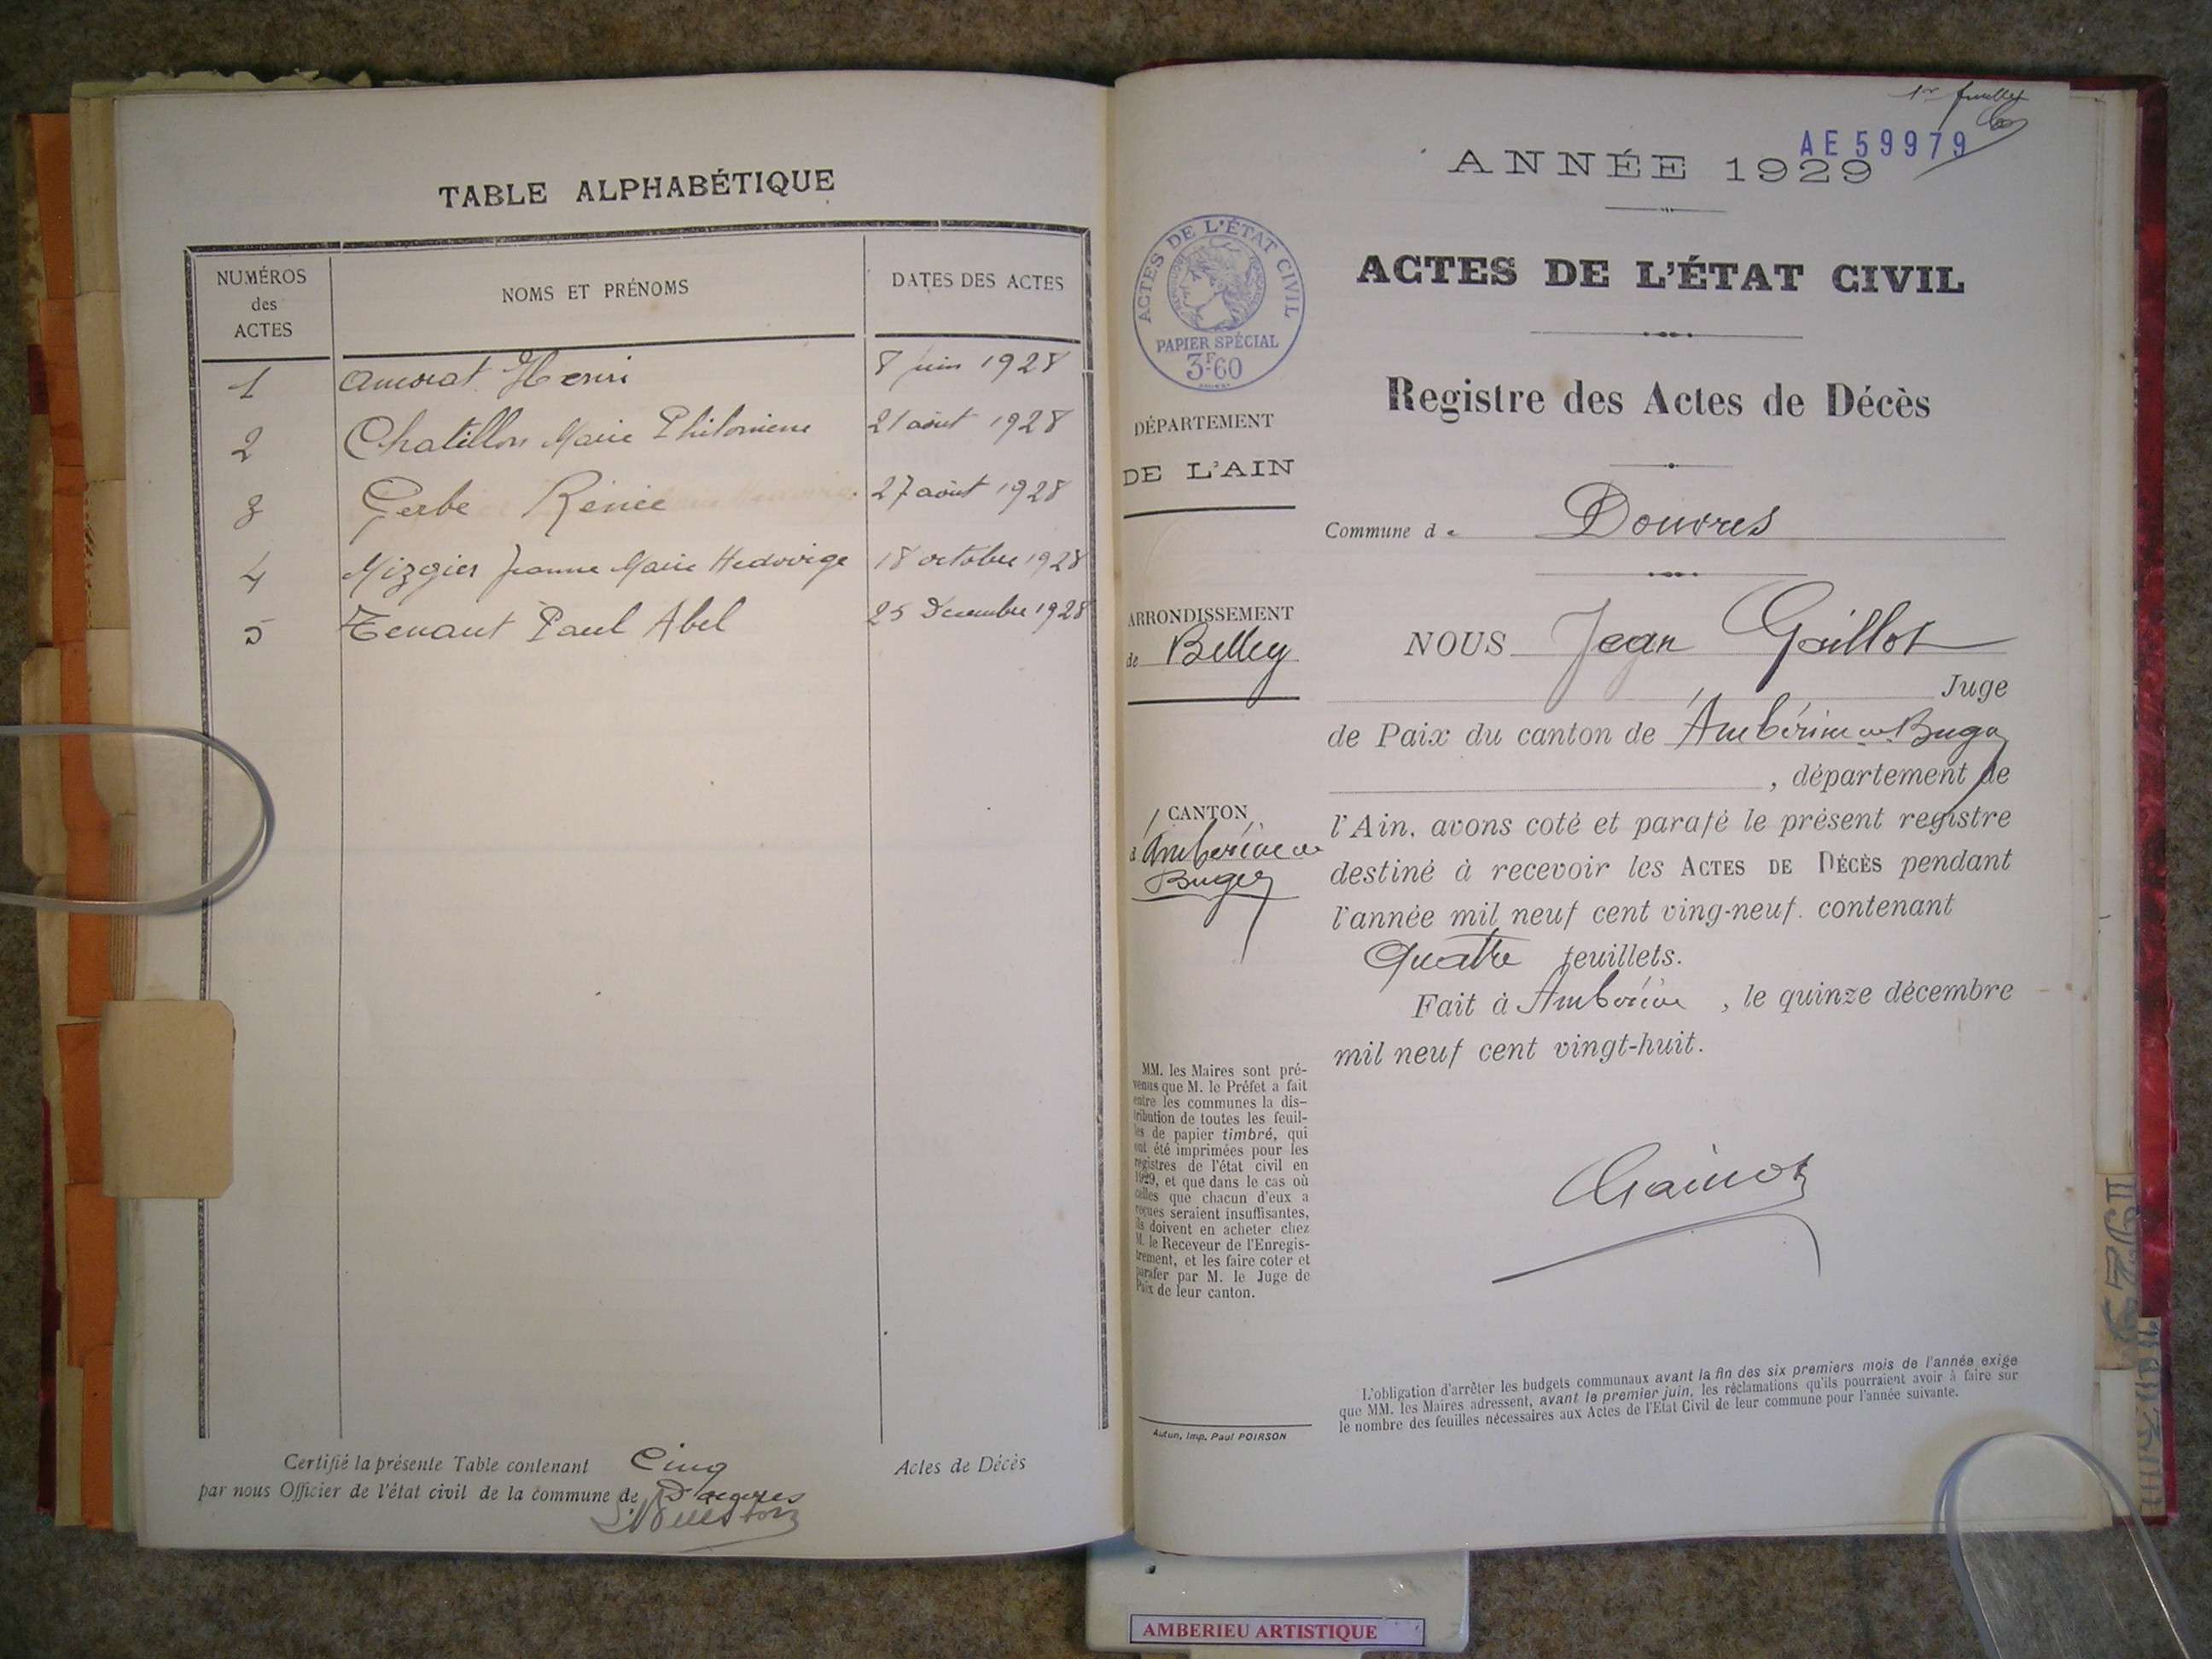 TABLE ALPHABÉTIQUE
NUMÉROS
des
ACTES
NOMS ET PRÉNOMS
DATES DES ACTES
1 Amorat Henri 8 juin 1928
2 Chatillon Marie Philomène 21 août 1928
3 Gerbe Renée 27 août 1928
4 Mizgier Jeanne Marie Hedwige 18 octobre 1928
5 Tenant Paul Abel 25 Decembre 1928
Certifié la présente Table contenant Cinq Actes de Décès
par nous Officier de l'état civil de la commune de Douvres
1er feuillet
AE59979
ANNÉE 1929
ACTES DE L'ÉTAT CIVIL
PAPIER SPÉCIAL
3F60
ACTES DE L'ÉTAT CIVIL
Registre des Actes de Décès
DÉPARTEMENT
DE L'AIN
Commune de Douvres
ARRONDISSEMENT
de Belley
NOUS Jean Gaillot
Juge
de Paix du canton de Ambérieu en Bugey
, département de
l'Ain, avons coté et parafé le présent registre
destiné à recevoir les ACTES DE DÉCÈS pendant
l'année mil neuf cent ving-neuf. contenant
Quatre feuillets.
Fait à Ambérieu , le quinze décembre
mil neuf cent vingt-huit.
CANTON
d'Ambérieu en
Bugey
MM. les Maires sont pré-
venus que M. le Préfet a fait
entre les communes la dis-
tribution de toutes les feuil-
les de papier timbré, qui
ont été imprimées pour les
registres de l'état civil en
1929, et que dans le cas où
celles que chacun d'eux a
reçues seraient insuffisantes,
ils doivent en acheter chez
M. le Receveur de l'Enregis-
trement, et les faire coter et
parafer par M. le Juge de
Paix de leur canton.
Autun, Imp. Paul POIRSON
L'obligation d'arrêter les budgets communaux avant la fin des six premiers mois de l'année exige
que MM. les Maires adressent, avant le premier juin, les réclamations qu'ils pourraient avoir à faire sur
le nombre des feuilles nécessaires aux Actes de l'Etat Civil de leur commune pour l'année suivante.
AMBERIEU ARTISTIQUE